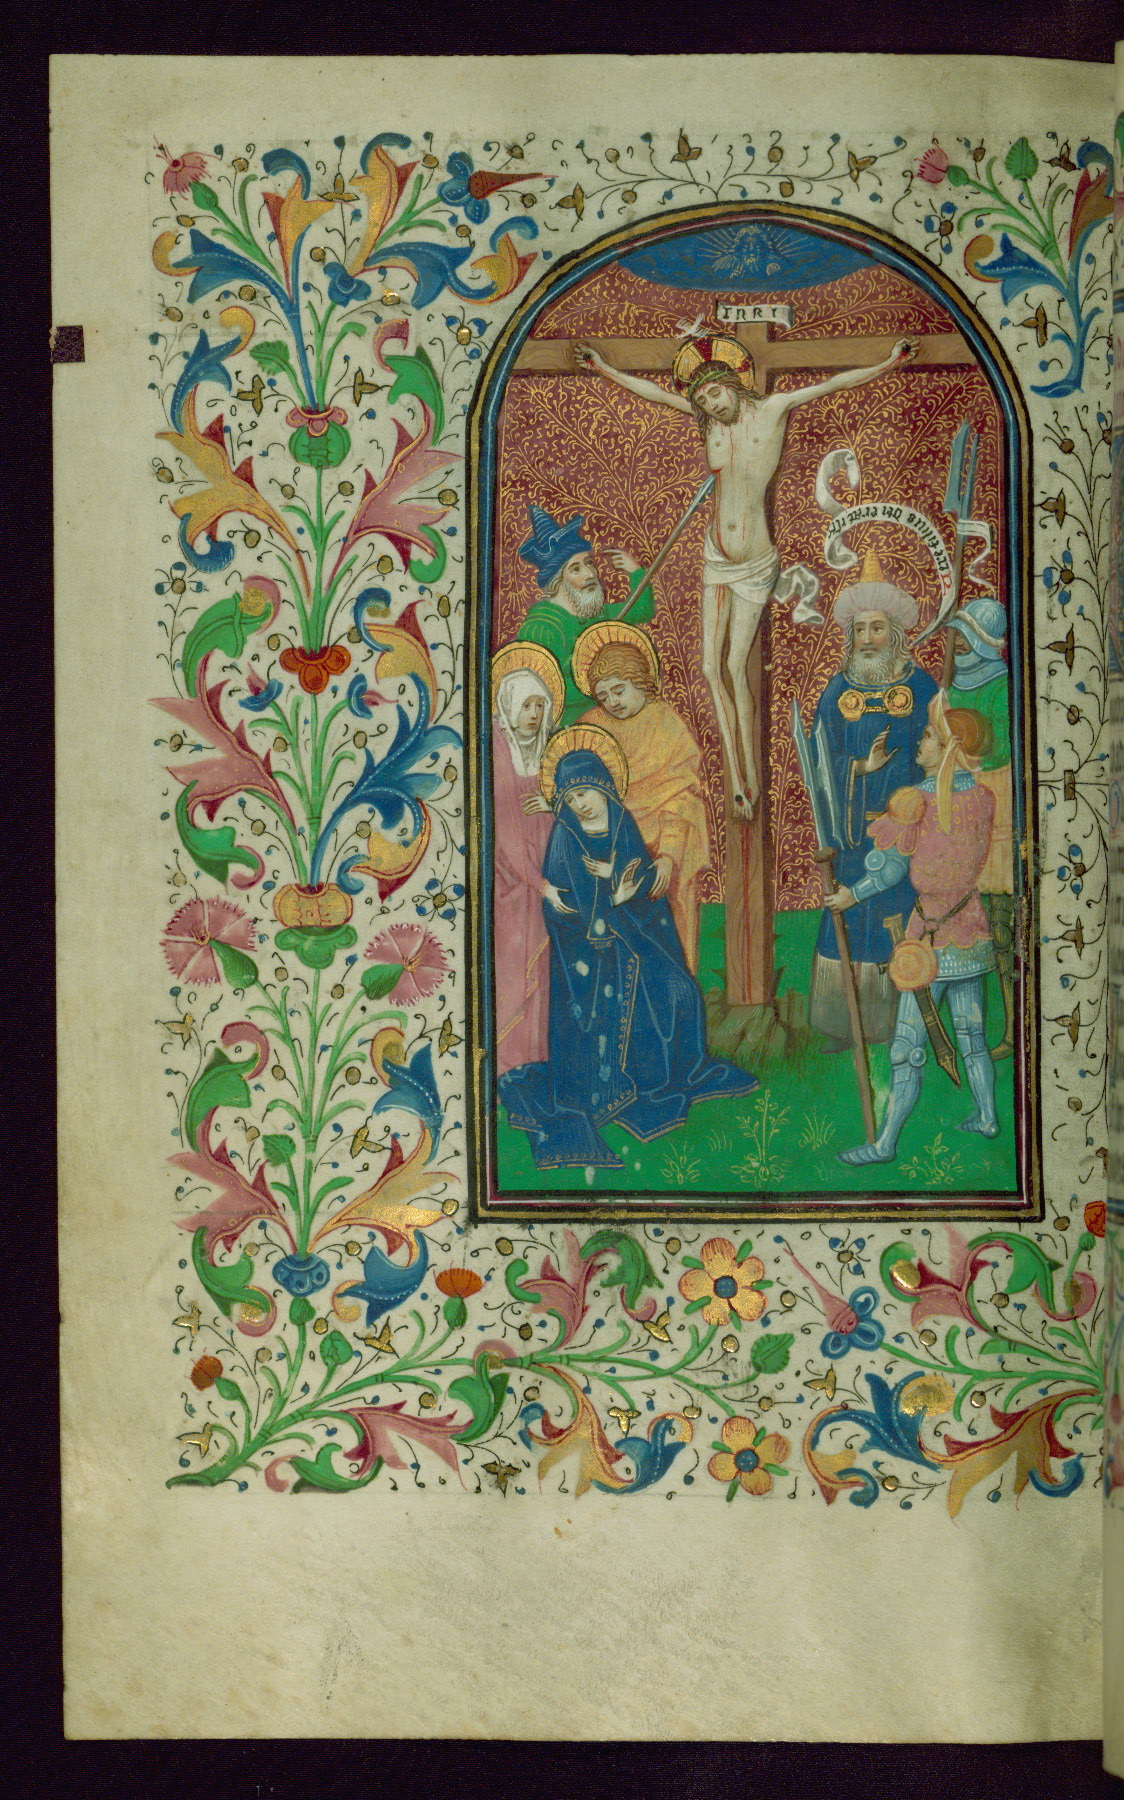 INRI
Vere filius dei erat iste